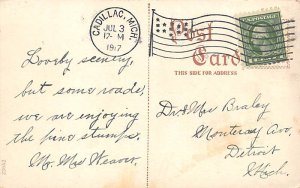 CADILLAC, MICH.
JUL 3
12-M
1917
Post
Card
THIS SIDE FOR ADDRESS
Lovely scenery,
but some roads,
we are enjoying
the pine stumps.
Mr. Mrs Weaver.
Dr. & Mrs Braley
Monterey Ave
Detroit
Mich.